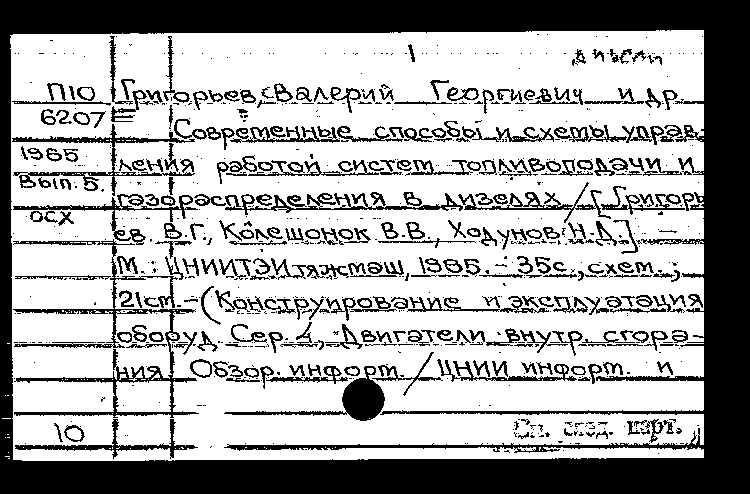 1
дизели
П10 Григорьев, Валерий Георгиевич и др.
6207 Современные способы и схемы управ-
1985 ления работой систем топливоподачи и
Вып. 5. газораспределения в дизелях / [Григорь
ОСХ ев В.Г., Колешонок В.В., Ходунов Н.Д.] –
М.: ЦНИИТЭИтяжмаш, 1985. – 35с., схем.;
21см. – (Конструирование и эксплуатация
оборуд. Сер. 4, Двигатели внутр. сгора-
ния Обзор. информ. / ЦНИИ информ. и
10 См. след. карт.